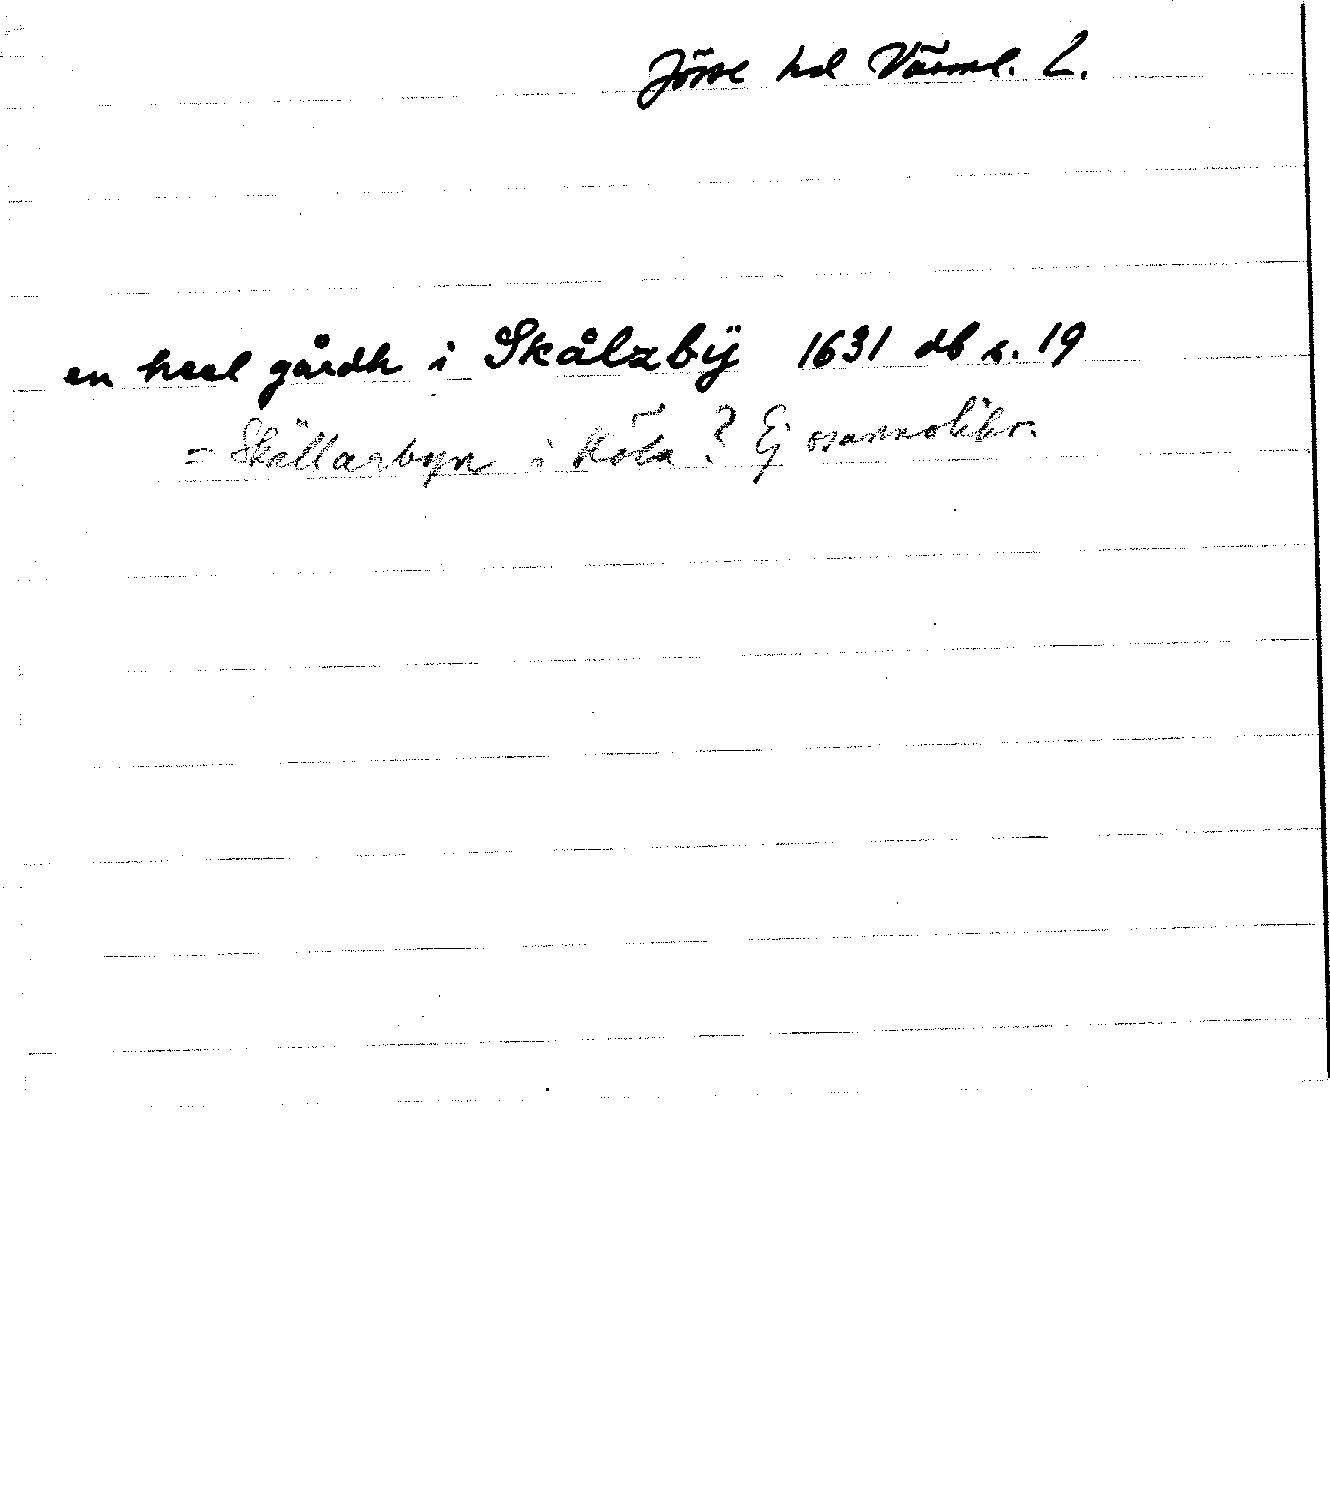 Jösse hd Värml. L.
en heel gårdh i Skålzbÿ 1631 db s. 19
= Skällarbyn i Köla? Ej osannolikt.